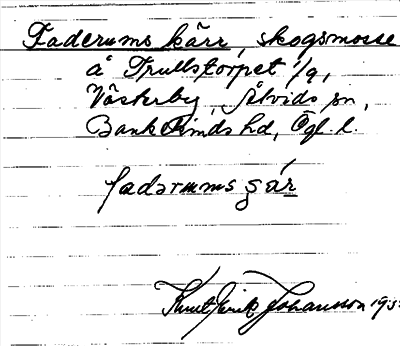 Faderums kärr, skogsmosse
å Trullstorpet 1/9,
Västerby, Åtvids sn,
Bankekinds hd, Ögl. l.
faderums sár
Knut Erik Johansson